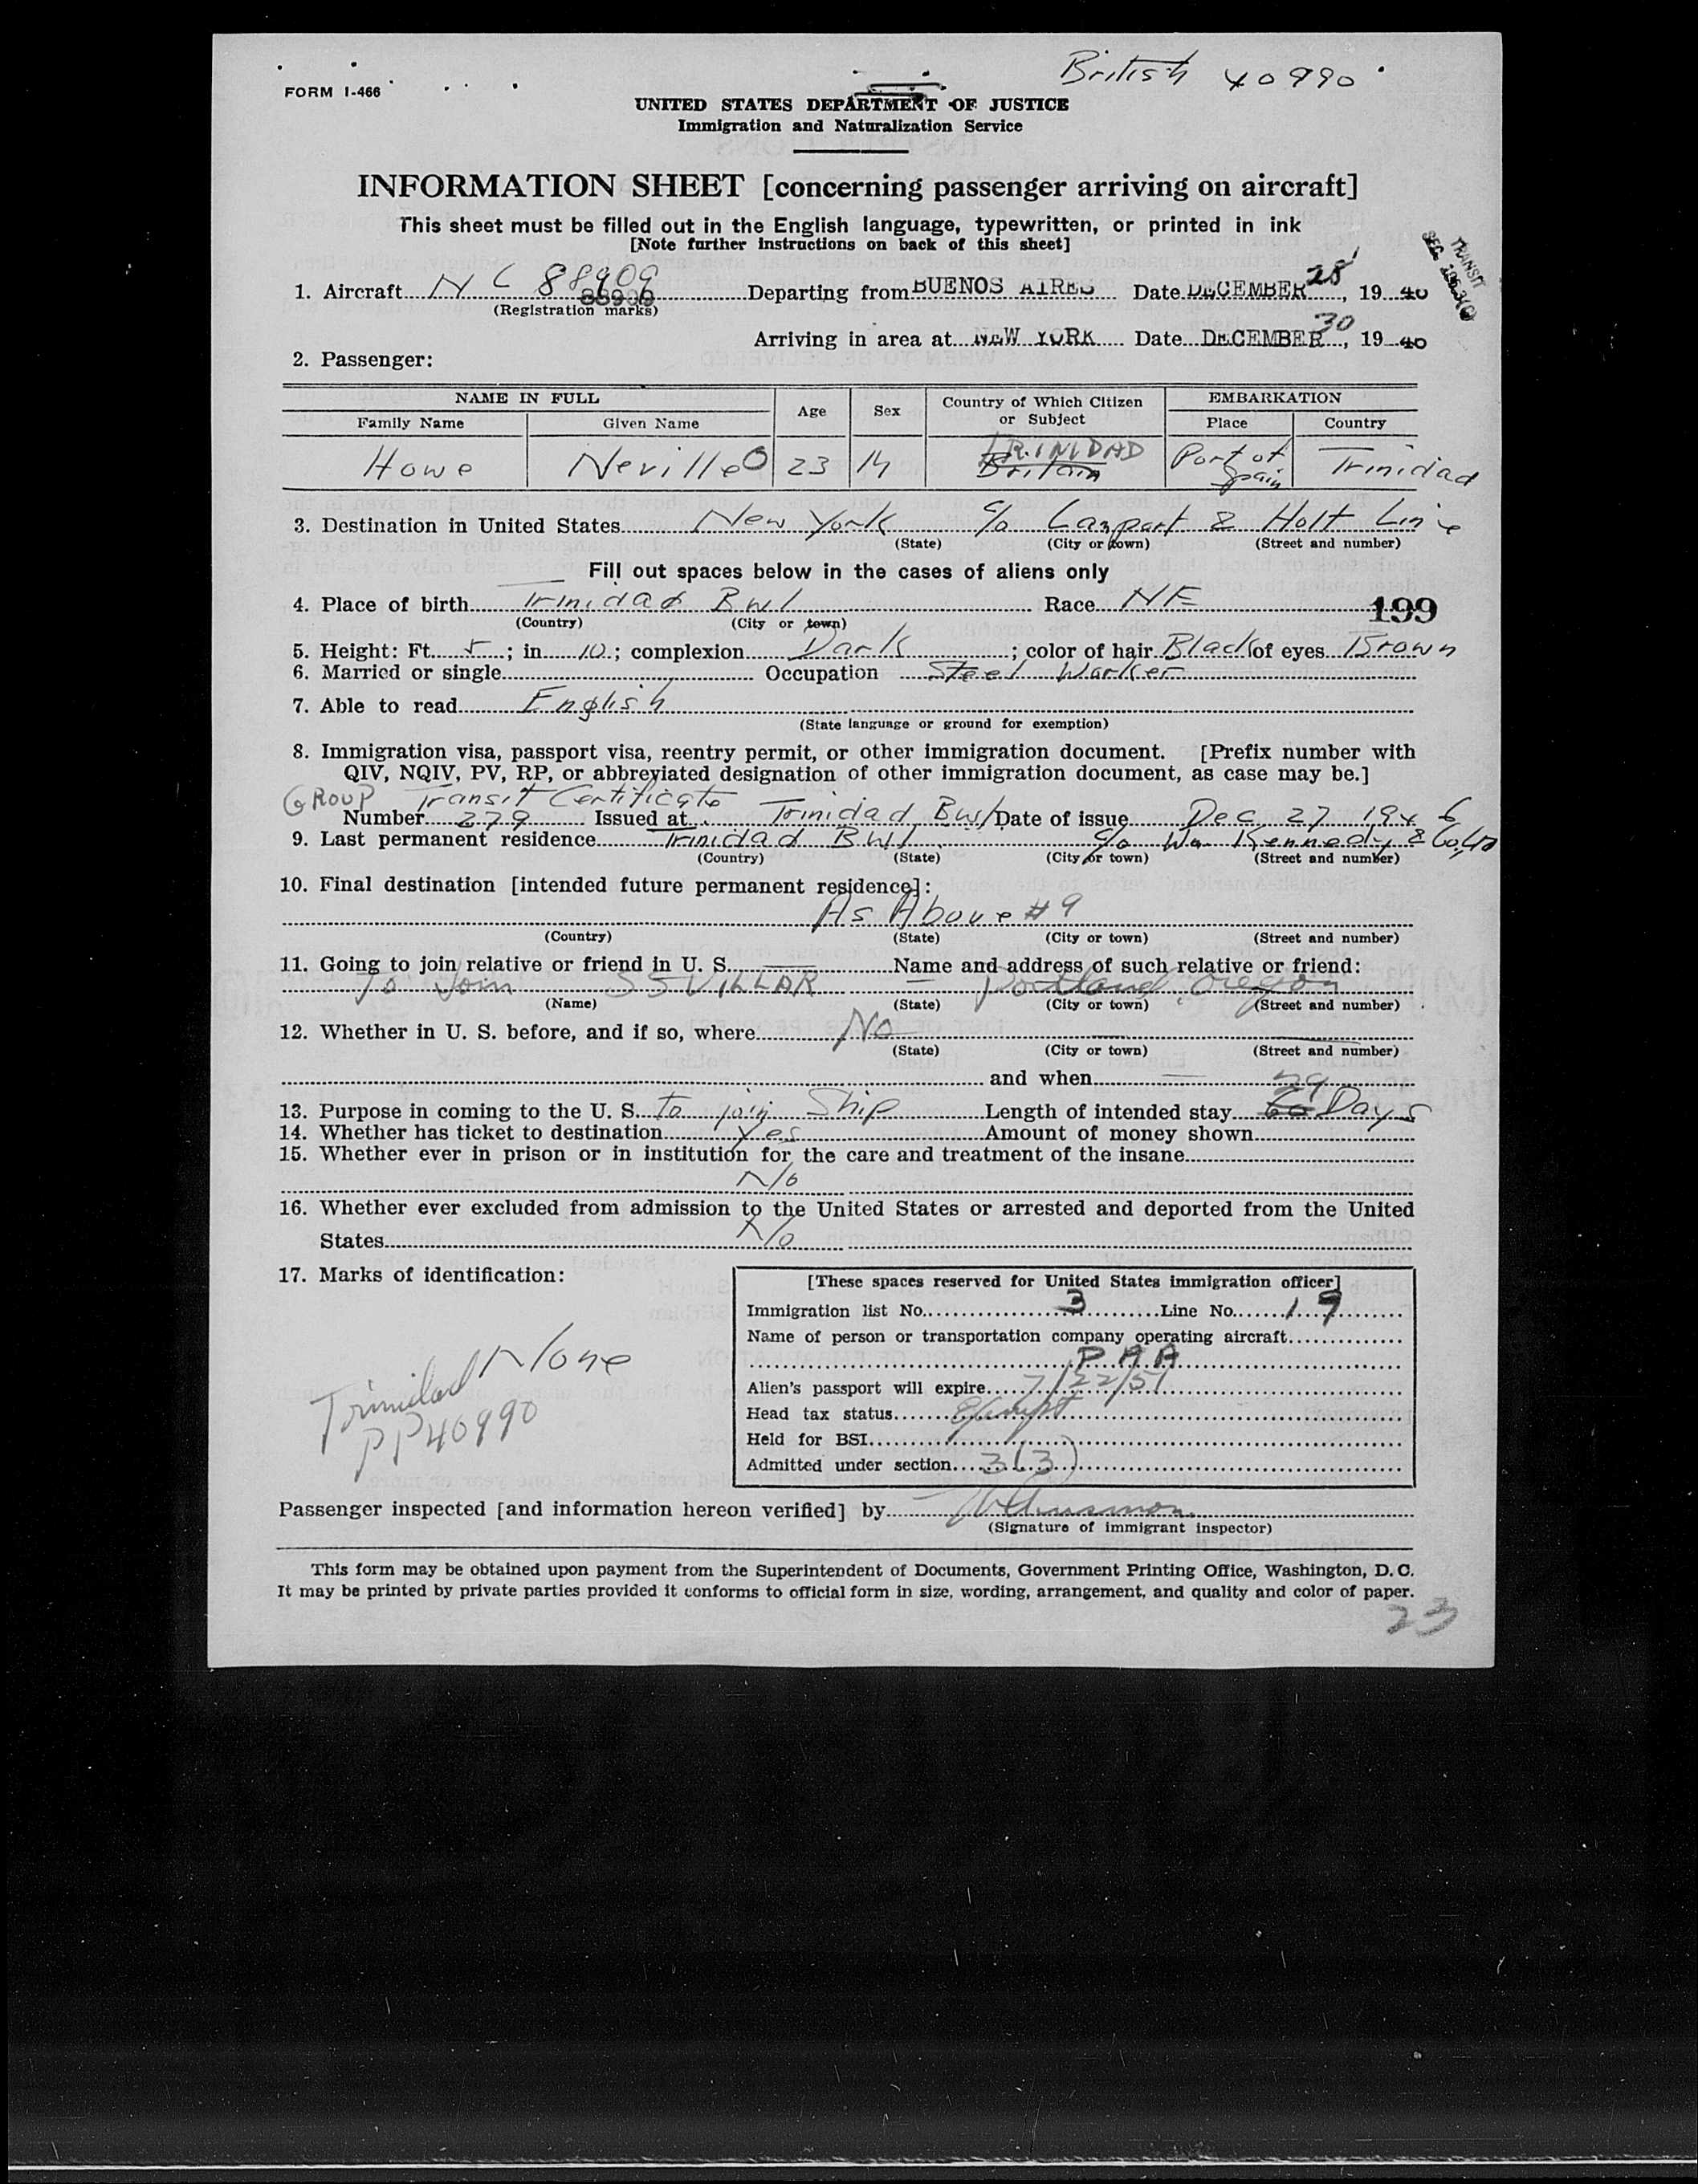 British 40990
FORM I-466
UNITED STATES DEPARTMENT OF JUSTICE
Immigration and Naturalization Service
INFORMATION SHEET [concerning passenger arriving on aircraft]
This sheet must be filled out in the English language, typewritten, or printed in ink
[Note further instructions on back of this sheet]
TRANSIT
1. Aircraft NC 88909 88909 Departing from BUENOS AIRES Date DECEMBER 28, 19 46
(Registration marks)
Arriving in area at NEW YORK Date DECEMBER 30, 19 46
2. Passenger:
NAME IN FULL Age Sex Country of Which Citizen or Subject EMBARKATION
Family Name Given Name Place Country
TRINIDAD
Howe Neville O 23 M Britain Port of Spain Trinidad
3. Destination in United States New York c/o Lamport & Holt Line
(State) (City or town) (Street and number)
Fill out spaces below in the cases of aliens only
4. Place of birth Trinidad BWI Race NE 199
(Country) (City or town)
5. Height: Ft. 5; in. 10; complexion Dark; color of hair Black of eyes Brown
6. Married or single Occupation Steel Worker
7. Able to read English
(State language or ground for exemption)
8. Immigration visa, passport visa, reentry permit, or other immigration document. [Prefix number with
QIV, NQIV, PV, RP, or abbreviated designation of other immigration document, as case may be.]
GROUP Transit Certificate
Number 279 Issued at Trinidad BWI Date of issue Dec 27 1946
9. Last permanent residence Trinidad BWI c/o Wm Kennedy & Co.
(Country) (State) (City or town) (Street and number)
10. Final destination [intended future permanent residence]:
As Above # 9
(Country) (State) (City or town) (Street and number)
11. Going to join relative or friend in U. S. Name and address of such relative or friend:
To Join SS VILLAR — Portland, Oregon
(Name) (State) (City or town) (Street and number)
12. Whether in U. S. before, and if so, where No
(State) (City or town) (Street and number)
and when —
29
13. Purpose in coming to the U. S. To join Ship Length of intended stay 60 Days
14. Whether has ticket to destination Yes Amount of money shown
15. Whether ever in prison or in institution for the care and treatment of the insane
No
16. Whether ever excluded from admission to the United States or arrested and deported from the United
States No
17. Marks of identification:
None
Trinidad
PP40990
[These spaces reserved for United States immigration officer]
Immigration list No. 3 Line No. 19
Name of person or transportation company operating aircraft
PAA
Alien's passport will expire 7/22/51
Head tax status Exempt
Held for BSI
Admitted under section 3(3)
Passenger inspected [and information hereon verified] by
(Signature of immigrant inspector)
This form may be obtained upon payment from the Superintendent of Documents, Government Printing Office, Washington, D. C.
It may be printed by private parties provided it conforms to official form in size, wording, arrangement, and quality and color of paper.
23